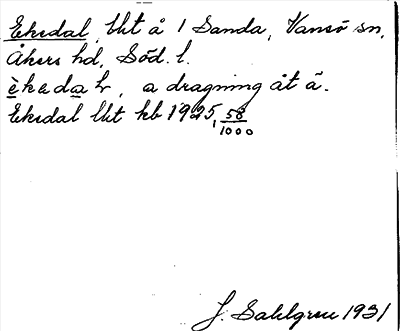 Eksdal, lht å 1 Sanda, Vansö sn,
Åkers hd, Söd. l.
èksdaɫ, a dragning åt ä.
Eksdal lht kb 1925, 58/1000
J. Sahlgren 1931